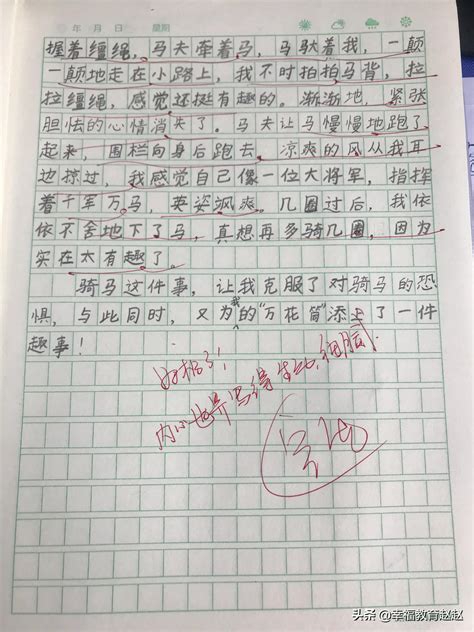 年 月 日 星期
握着缰绳，马夫牵着马，马驮着我，一颠
一颠地走在小路上，我不时拍拍马背，拉
拉缰绳，感觉还挺有趣的。渐渐地，紧张
胆怯的心情消失了。马夫让马慢慢地跑了
起来，围栏向身后跑去，凉爽的风从我耳
边掠过，我感觉自己像一位大将军，指挥
着千军万马，英姿飒爽。几圈过后，我依
依不舍地下了马，真想再多骑几圈，因为
实在太有趣了。
骑马这件事，让我克服了对骑马的恐
惧，与此同时，又为我的“万花筒”添上了一件
趣事！
好极了！
内心世界写得生动、细腻
头条 @幸福教育赵赵